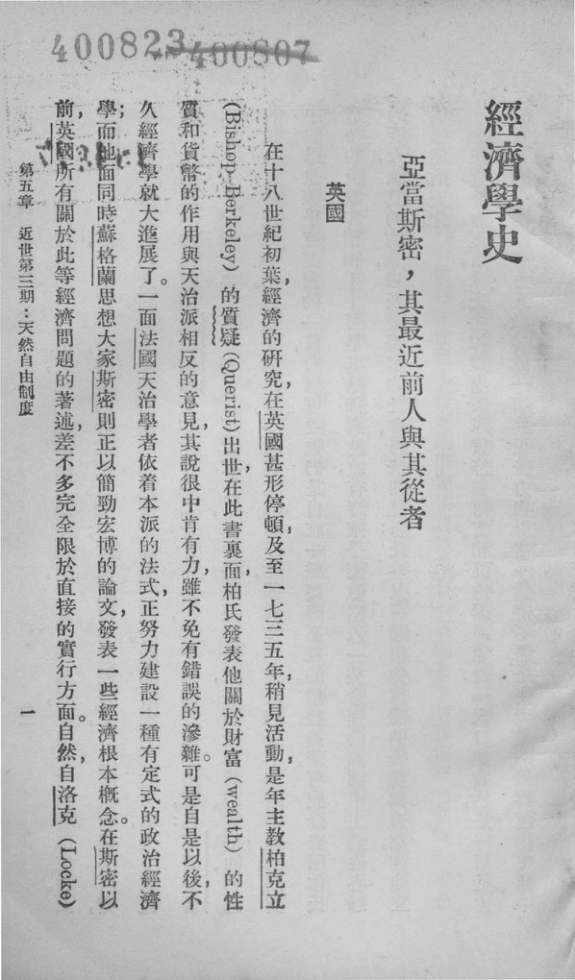 400823 400807
經濟學史
亞當斯密，其最近前人與其從者
英國
在十八世紀初葉，經濟的研究，在英國甚形停頓，及至一七三五年，稍見活動，是年主教柏克立
(Bishop Berkeley) 的質疑 (Querist) 出世，在此書裏面，柏氏發表他關於財富 (wealth) 的性
質和貨幣的作用與天治派相反的意見，其說很中肯有力，雖不免有錯誤的滲雜。可是自是以後，不
久經濟學就大進展了。一面法國天治學者依着本派的法式，正努力建設一種有定式的政治經濟
學；而他面同時蘇格蘭思想大家斯密則正以簡勁宏博的論文，發表一些經濟根本概念。在斯密以
前，英國所有關於此等經濟問題的著述，差不多完全限於直接的實行方面。自然，自洛克 (Locke)
第五章　近世第三期：天然自由制度
一